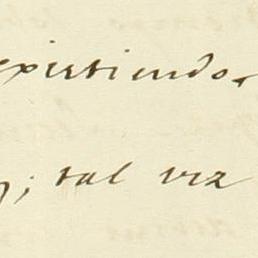 existiendo,
; tal vez